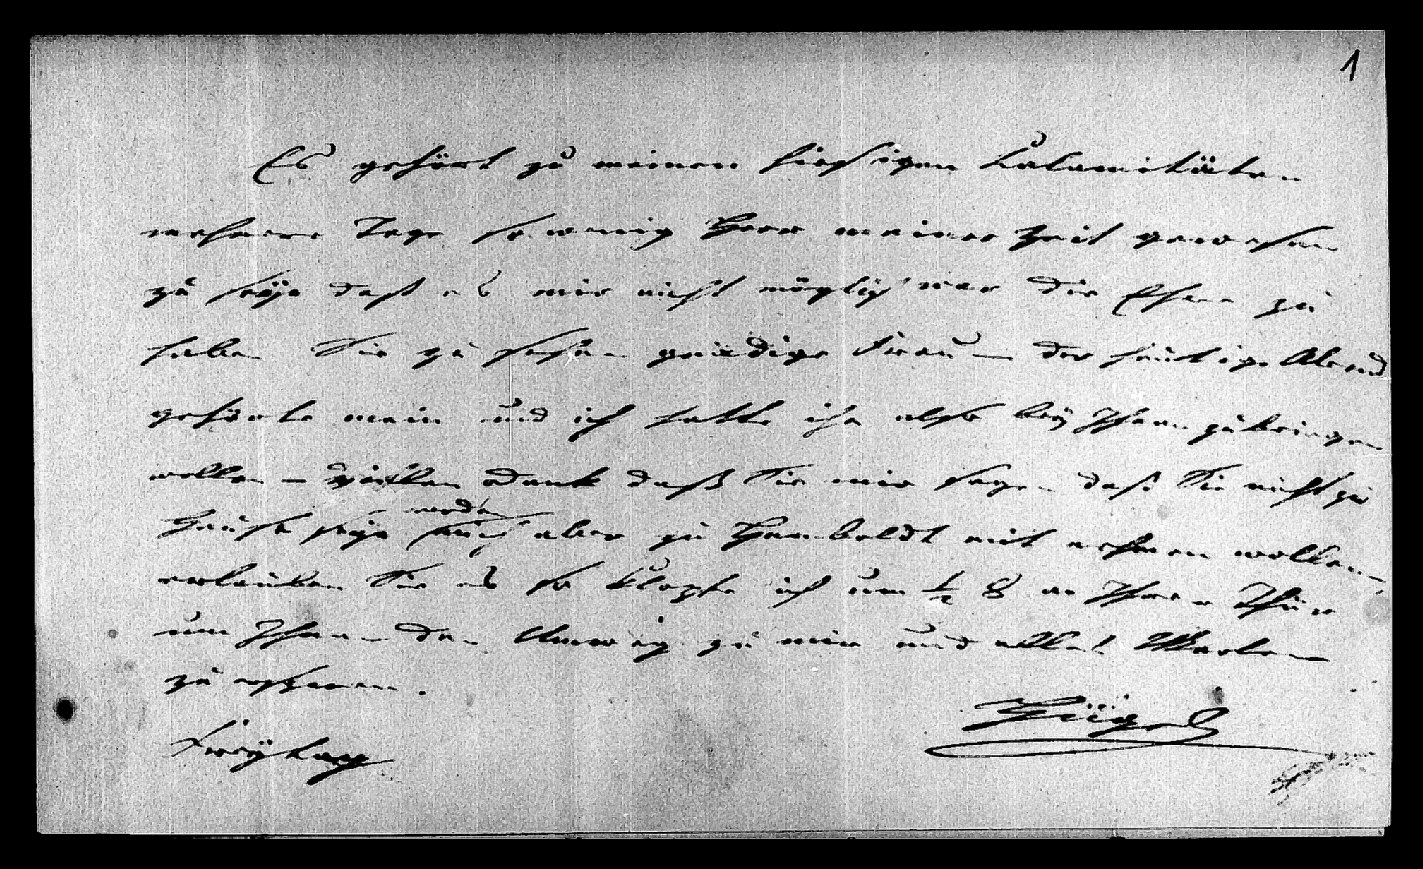 1
Es gehört zu meinen hiesigen Calamitäten
mehrere Tage so wenig Herr meiner Zeit gewesen
zu seyn daß es mir nicht möglich war die Ehre zu
haben Sie zu sehen gnädige Frau – der heutige Abend
gehörte mein und ich hatte ihn also bey Ihnen zubringen
wollen – vielen Dank daß Sie mir sagen daß Sie nicht zu
Hause seyn werden
mich aber zu Humboldt mit nehmen wollen –
erlauben Sie es so klopfe ich um ½ 8 an Ihre Thür
um Ihnen den Umweg zu mir und alles Warten
zu ersparen.
Hügel
Freytag